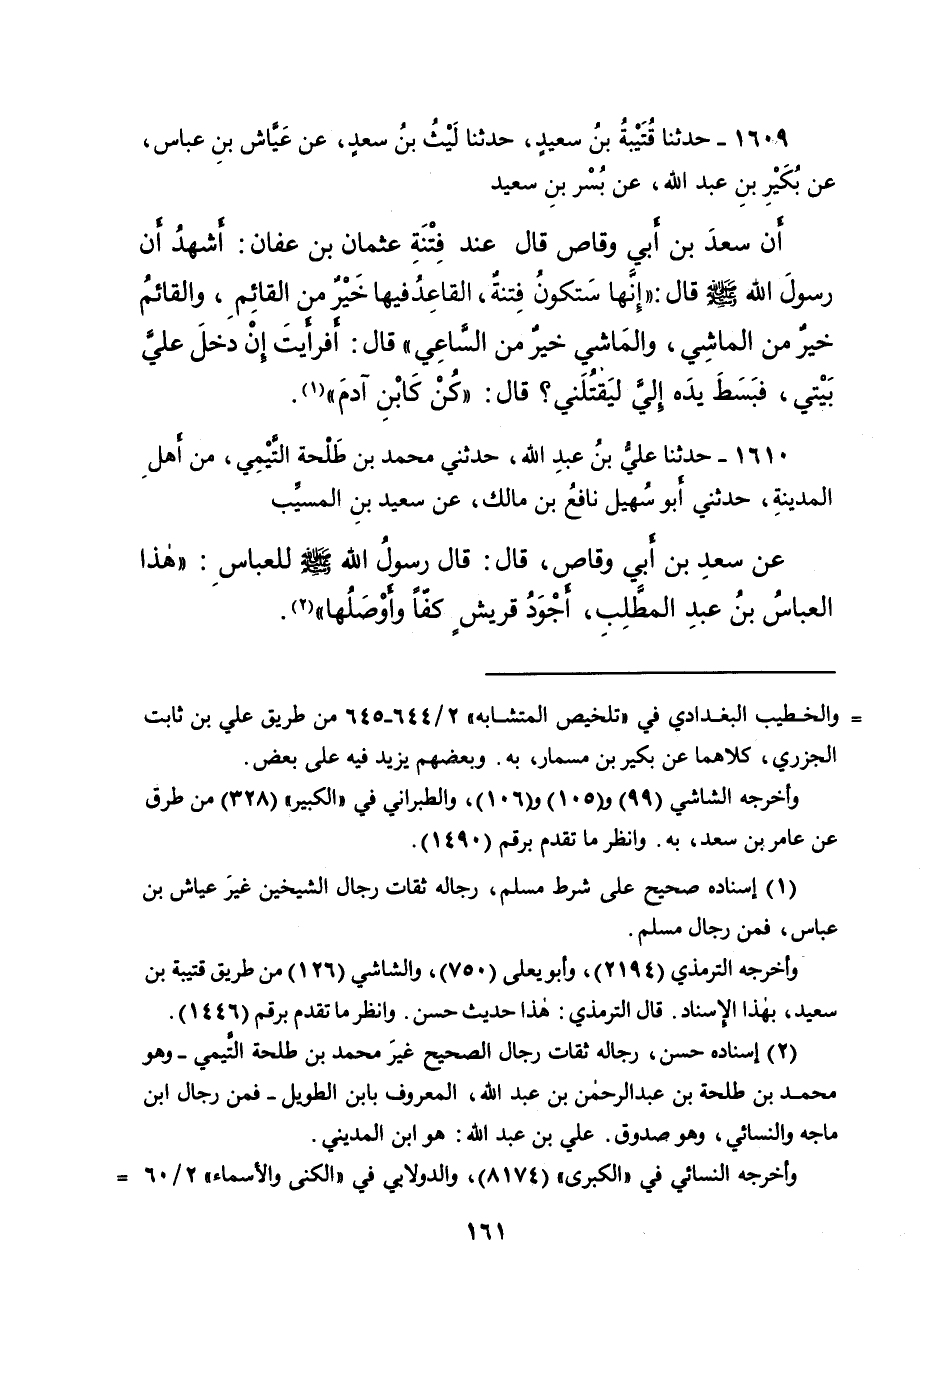 ١٦٠٩ ـ حدثنا قُتَيْبةُ بنُ سعيدٍ، حدثنا لَيْثُ بنُ سعدٍ، عن عَيَّاش بنِ عباس،
عن بُكَيْرِ بنِ عبد الله، عن بُسْر بنِ سعيد
أَن سعدَ بن أَبي وقاص قال عند فِتْنَةِ عثمان بن عفان: أَشهدُ أَن
رسولَ الله ﷺ قال: «إِنَّها سَتكونُ فِتنةٌ، القاعِدُ فيها خَيْرٌ من القائِمِ، والقائمُ
خيرٌ من الماشِي، والمَاشي خيرٌ من السَّاعِي» قال: أَفرأَيتَ إِنْ دخلَ عليَّ
بَيْتي، فبَسَطَ يدَه إِليَّ لِيَقْتُلَني؟ قال: «كُنْ كَابْنِ آدمَ»(١).
١٦١٠ ـ حدثنا عليُّ بنُ عبدِ الله، حدثني محمد بن طَلْحة التَّيْمِي، من أَهلِ
المدينةِ، حدثني أَبو سُهيل نافعُ بن مالك، عن سعيد بنِ المسيَّب
عن سعدِ بن أَبي وقاص، قال: قال رسولُ الله ﷺ للعباسِ: «هٰذا
العباسُ بنُ عبدِ المطَّلِبِ، أَجْوَدُ قريشٍ كفّاً وأَوْصَلُها»(٢).
= والخطيب البغدادي في «تلخيص المتشابه» ٢/٦٤٤-٦٤٥ من طريق علي بن ثابت
الجزري، كلاهما عن بكير بن مسمار، به. وبعضهم يزيد فيه على بعض.
وأخرجه الشاشي (٩٩) و(١٠٥) و(١٠٦)، والطبراني في «الكبير» (٣٢٨) من طرق
عن عامر بن سعد، به. وانظر ما تقدم برقم (١٤٩٠).
(١) إسناده صحيح على شرط مسلم، رجاله ثقات رجال الشيخين غيرَ عياش بن
عباس، فمن رجال مسلم.
وأخرجه الترمذي (٢١٩٤)، وأبو يعلى (٧٥٠)، والشاشي (١٢٦) من طريق قتيبة بن
سعيد، بهٰذا الإسناد. قال الترمذي: هٰذا حديث حسن. وانظر ما تقدم برقم (١٤٤٦).
(٢) إسناده حسن، رجاله ثقات رجال الصحيح غيرَ محمد بن طلحة التَّيمي ـ وهو
محمد بن طلحة بن عبدالرحمٰن بن عبد الله، المعروف بابن الطويل ـ فمن رجال ابن
ماجه والنسائي، وهو صدوق. علي بن عبد الله: هو ابن المديني.
وأخرجه النسائي في «الكبرى» (٨١٧٤)، والدولابي في «الكنى والأسماء» ٢/٦٠ =
١٦١